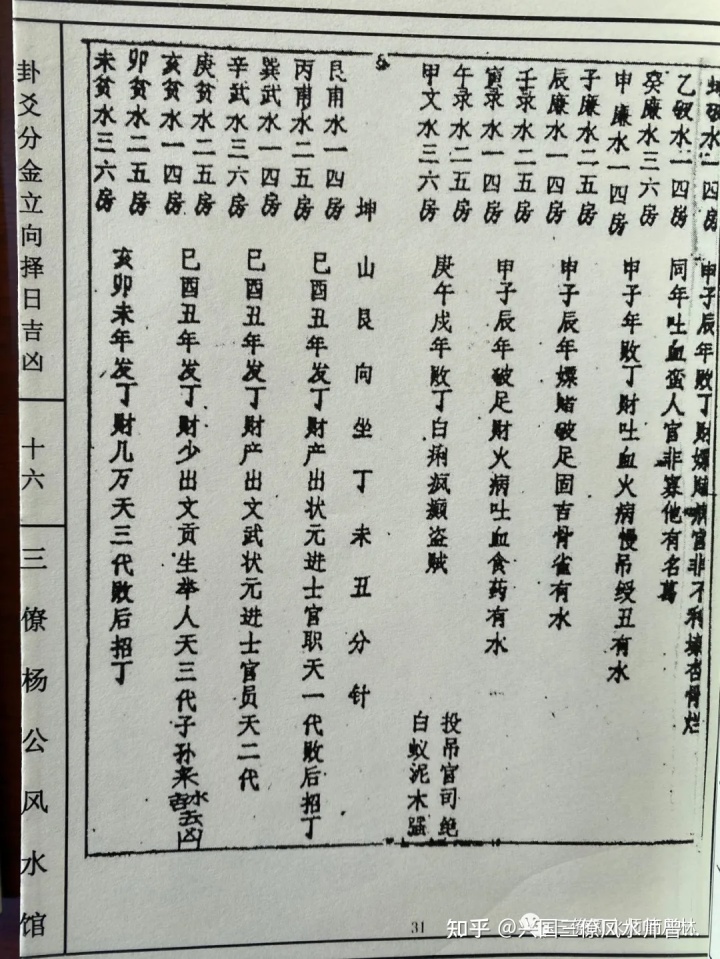 破水一四房
乙破水一四房
癸廉水三六房
申廉水一四房
子廉水二五房
辰廉水一四房
壬录水二五房
寅录水一四房
午录水二五房
甲文水三六房
甲子辰年败丁财嫖赌病官非不利
骨烂
同年吐血蛮人官非寡他有名
甲子年败丁财吐血火病慢吊绶丑有水
甲子辰年嫖赌破足固吉骨雀有水
甲子辰年破足财火病吐血食药有水
庚午戌年败丁白痢疯癫盗贼
投吊官司绝
白蚁泥木
坤山艮向坐丁未丑分针
艮甫水一四房
丙甫水二五房
巽武水一四房
辛武水三六房
庚贫水二五房
亥贫水一四房
卯贫水二五房
未贫水三六房
巳酉丑年发丁财产出状元进士官职天一代败后招丁
巳酉丑年发丁财产出文武状元进士官员天二代
巳酉丑年发丁财少出文贡生举人天三代子孙来水吉去凶
亥卯未年发丁财几万天三代败后招丁
卦爻分金立向择日吉凶
十六
三僚杨公风水馆
31
知乎 @兴国三僚风水师曾林